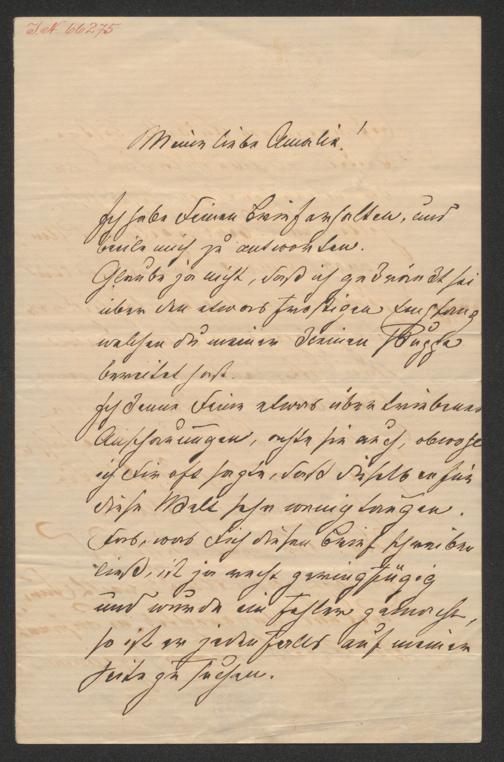 I.N. 66275
Meine liebe Amalie!
Ich habe Deinen Brief erhalten, und
beeile mich zu antworten.
Glaube ja nicht, daß ich gekränkt sei
über den etwas frostigen Empfang
welchen du meiner kleinen
bereitet hast.
Ich kenne Deine etwas übertriebenen
Anschauungen, achte sie auch, obwohl
ich Dir oft sagte, daß dieselben für
diese Welt sehr wenig taugen.
Das, was Dich diesen Brief schreiben
ließ, ist ja recht geringfügig
und wurde ein Fehler gemacht,
so ist er jedenfalls auf meiner
Seite zu suchen.